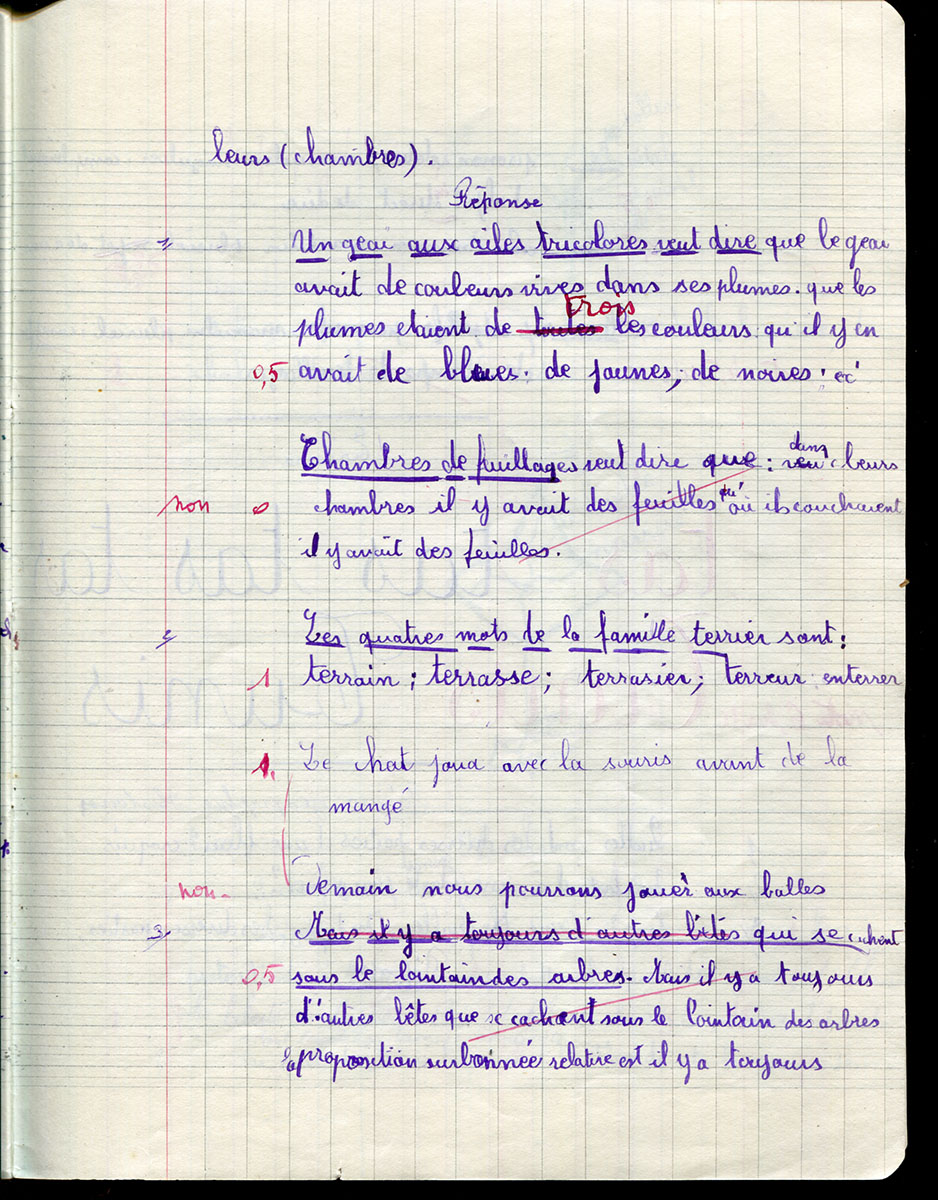 leurs (chambres).
Réponse
1 Un geai aux ailes tricolores veut dire que le geai
avait de couleurs vives dans ses plumes. que les
plumes etaient de toutes trois les couleurs. qu'il y en
0,5 avait de bleues. de jaunes, de noires
Chambres de feuillages veut dire que : dans leurs
non 0 chambres il y avait des feuilles où ils couchaient
il y avait des feuilles.
2 Les quatres mots de la famille terrier sont :
1 terrain ; terrasse ; terrasier ; terreur enterrer
1. Le chat joua avec la souris avant de la
mangé
non - Demain nous pourrons jouer aux balles
3 Mais il y a toujours d'autres bêtes qui se cachent
0,5 sous le lointain des arbres. Mais il y a toujours
d'autres bêtes que se cachent sous le lointain des arbres
la proposition surbonnée relative est il y a toujours